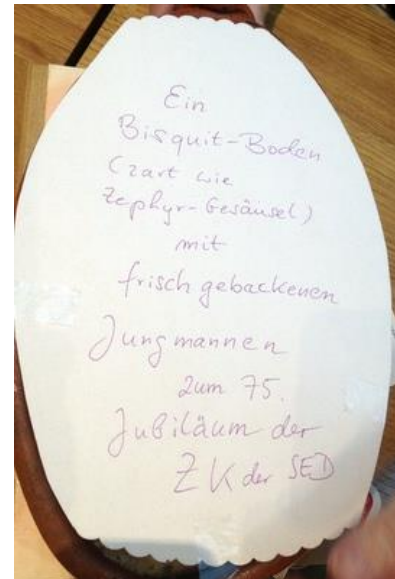 Ein
Bisquit-Boden
(zart wie
Zephyr-Gesäusel)
mit
frisch gebackenen
Jungmannen
zum 75.
Jubiläum der
ZK der SED